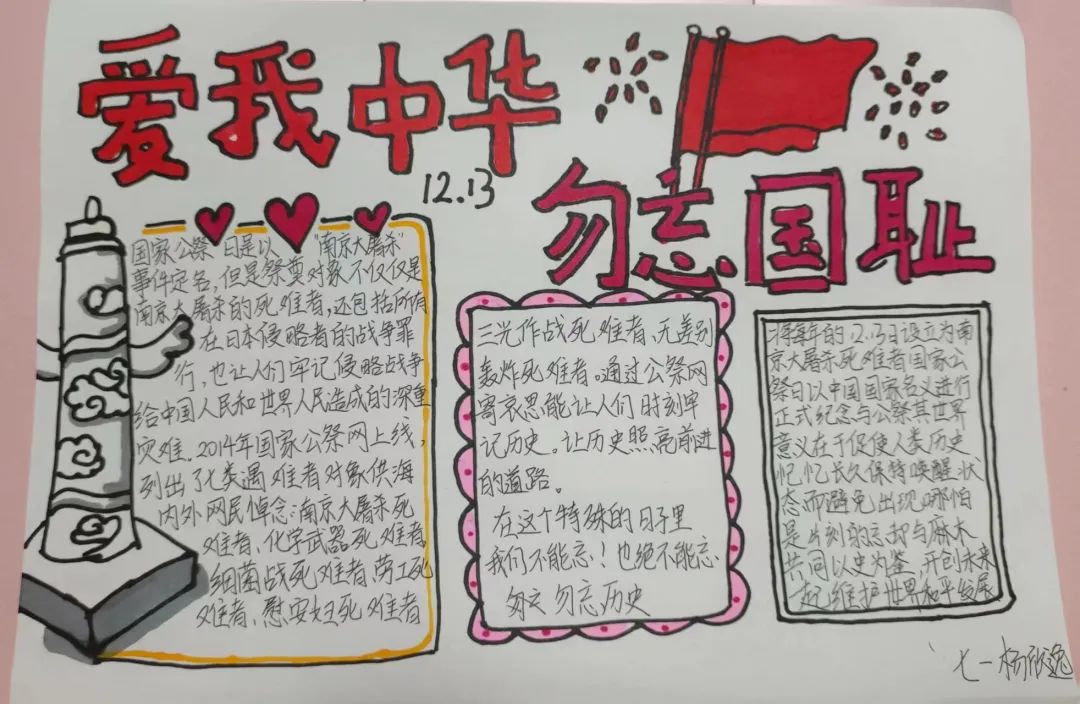 爱我中华
12.13
勿忘国耻
国家公祭 日是以 "南京大屠杀"
事件定名，但是祭奠对象不仅仅是
南京大屠杀的死难者，还包括所有
在日本侵略者的战争罪
行，也让人们牢记侵略战争
给中国人民和世界人民造成的深重
灾难。2014年国家公祭网上线，
列出了七类遇难者对象供海
内外网民悼念：南京大屠杀死
难者、化学武器死难者、
细菌战死难者、劳工死
难者、慰安妇死难者
三光作战死难者、无差别
轰炸死难者。通过公祭网
寄哀思能让人们时刻牢
记历史。让历史照亮前进
的道路。
在这个特殊的日子里
我们不能忘！也绝不能忘
勿忘历史
将每年的12.13日设立为南
京大屠杀死难者国家公
祭日以中国国家名义进行
正式纪念与公祭其世界
意义在于促使人类历史
记忆长久保持唤醒状
态而避免出现哪怕
是片刻的忘却与麻木
共同以史为鉴，开创未来
一起维护世界和平发展
七一杨欣逸